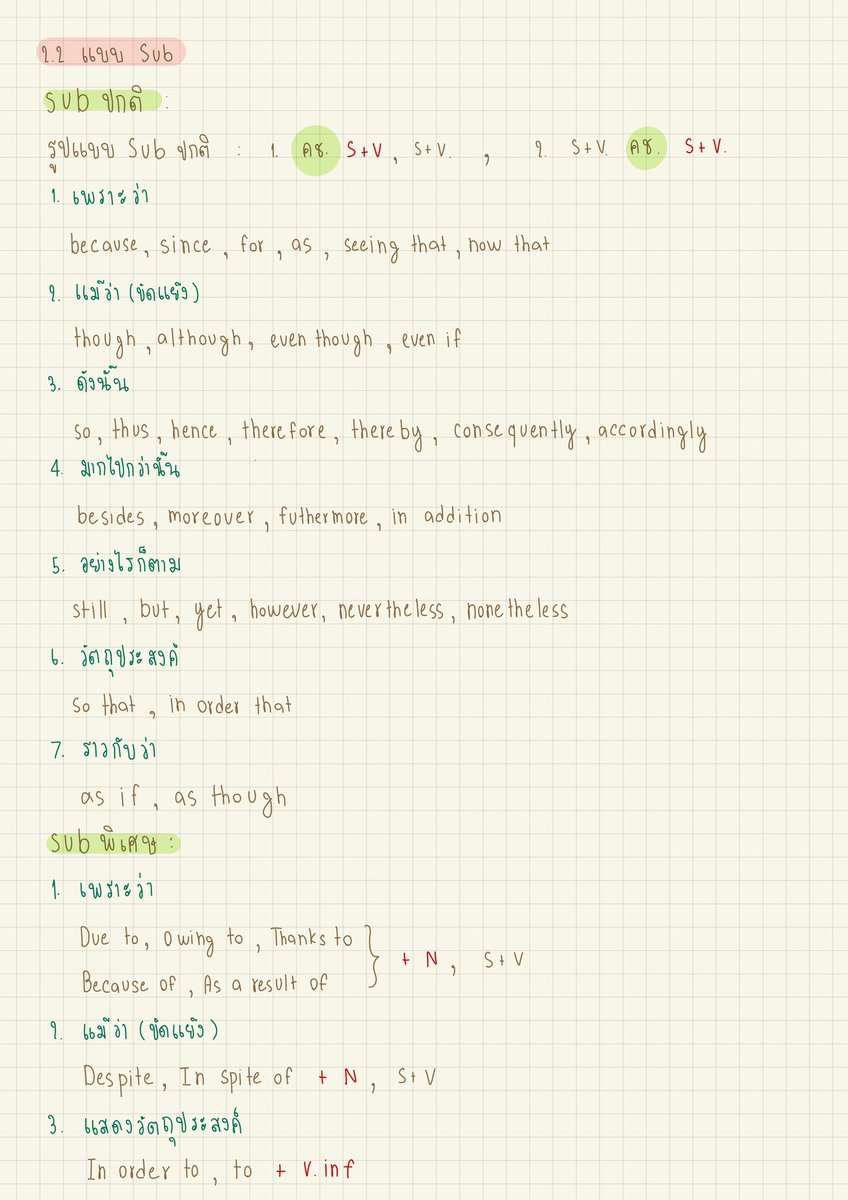 2.2 แบบ Sub
Sub ปกติ :
รูปแบบ Sub ปกติ : 1. คช. S+V , S+V. , 2. S+V. คช. S+V.
1. เพราะว่า
because, since , for , as , seeing that , now that
2. แม้ว่า (ขัดแย้ง)
though , although , even though , even if
3. ดังนั้น
so , thus , hence , therefore , thereby , consequently , accordingly
4. มากไปกว่านั้น
besides , moreover , futhermore , in addition
5. อย่างไรก็ตาม
still , but , yet , however, nevertheless , nonetheless
6. วัตถุประสงค์
so that , in order that
7. ราวกับว่า
as if , as though
Sub พิเศษ :
1. เพราะว่า
Due to, Owing to , Thanks to
Because of , As a result of } + N , S+V
2. แม้ว่า (ขัดแย้ง)
Despite , In spite of + N , S+V
3. แสดงวัตถุประสงค์
In order to , to + V.inf